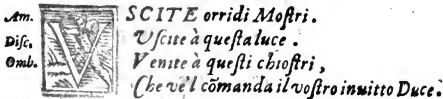 Am. VSCITE orridi Moſtri.
Diſc. Vſcite à queſta luce.
Omb. Venite à queſti chioſtri,
Che ve'l cōmanda il voſtro inuitto Duce.